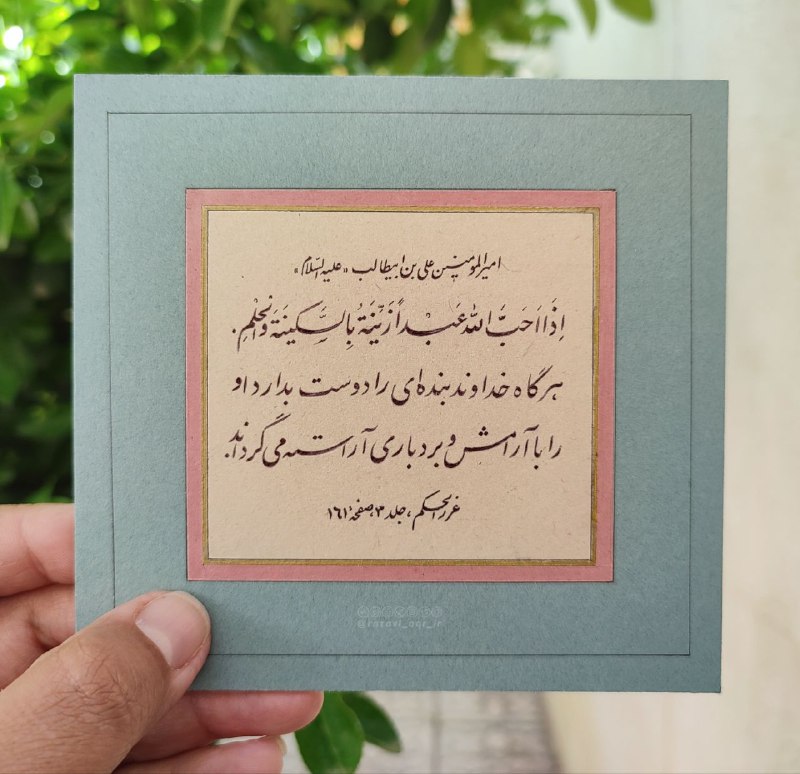 امیرالمومنین علی بن ابیطالب «علیه السلام»
اِذَا اَحَبَّ اللهُ عَبْداً زَیَّنَهُ بِالسَّکینَةِ وَالْحِلْمِ.
هرگاه خداوند بنده‌ای را دوست بدارد او
را با آرامش و بردباری آراسته می‌گرداند.
غررالحکم، جلد ۳، صفحهٔ ۱۶۱
@razavi_aqr_ir